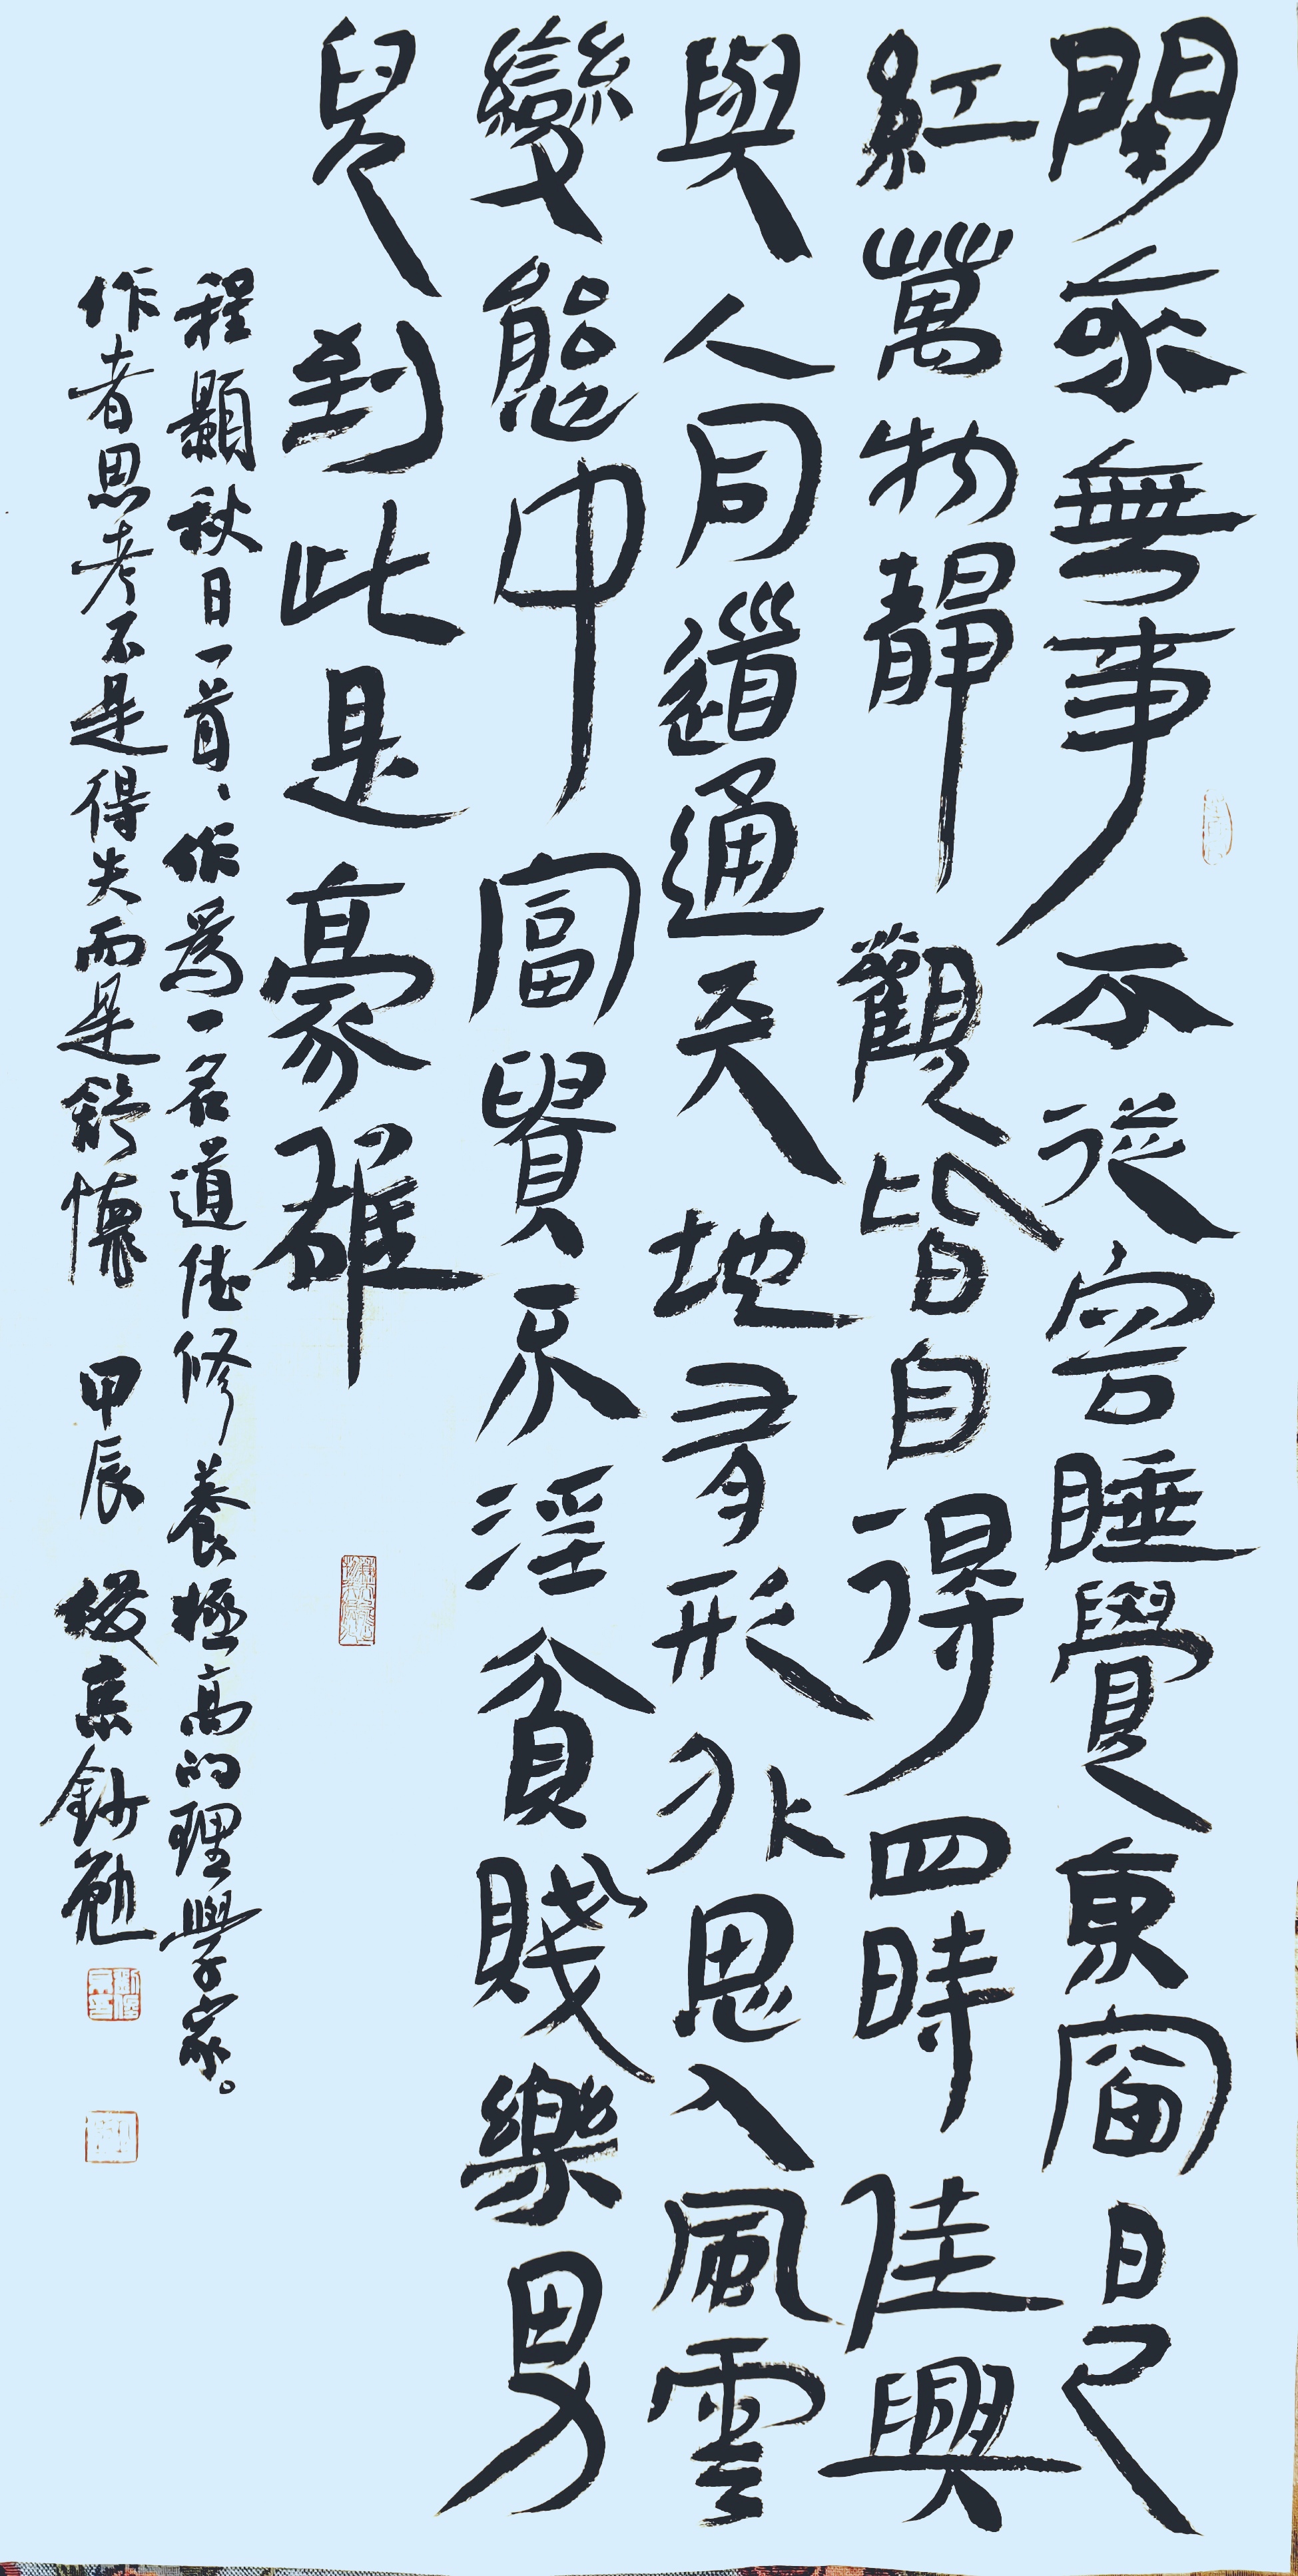 閑來無事不從容睡覺東窗日已
紅萬物靜觀皆自得四時佳興
與人同道通天地有形外思入風雲
變態中富貴不淫貧賤樂男
兒到此是豪雄
程顥秋日一首、作為一名道德修養極高的理學家。
作者思考不是得失而是舒懷 甲辰 俊京鈔勉